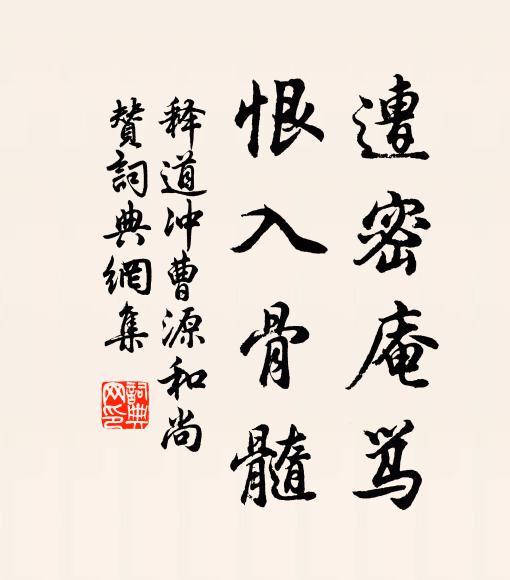 遭密庵骂
恨入骨髓
释道冲曹源和尚
赞词典網集
詞典
网印